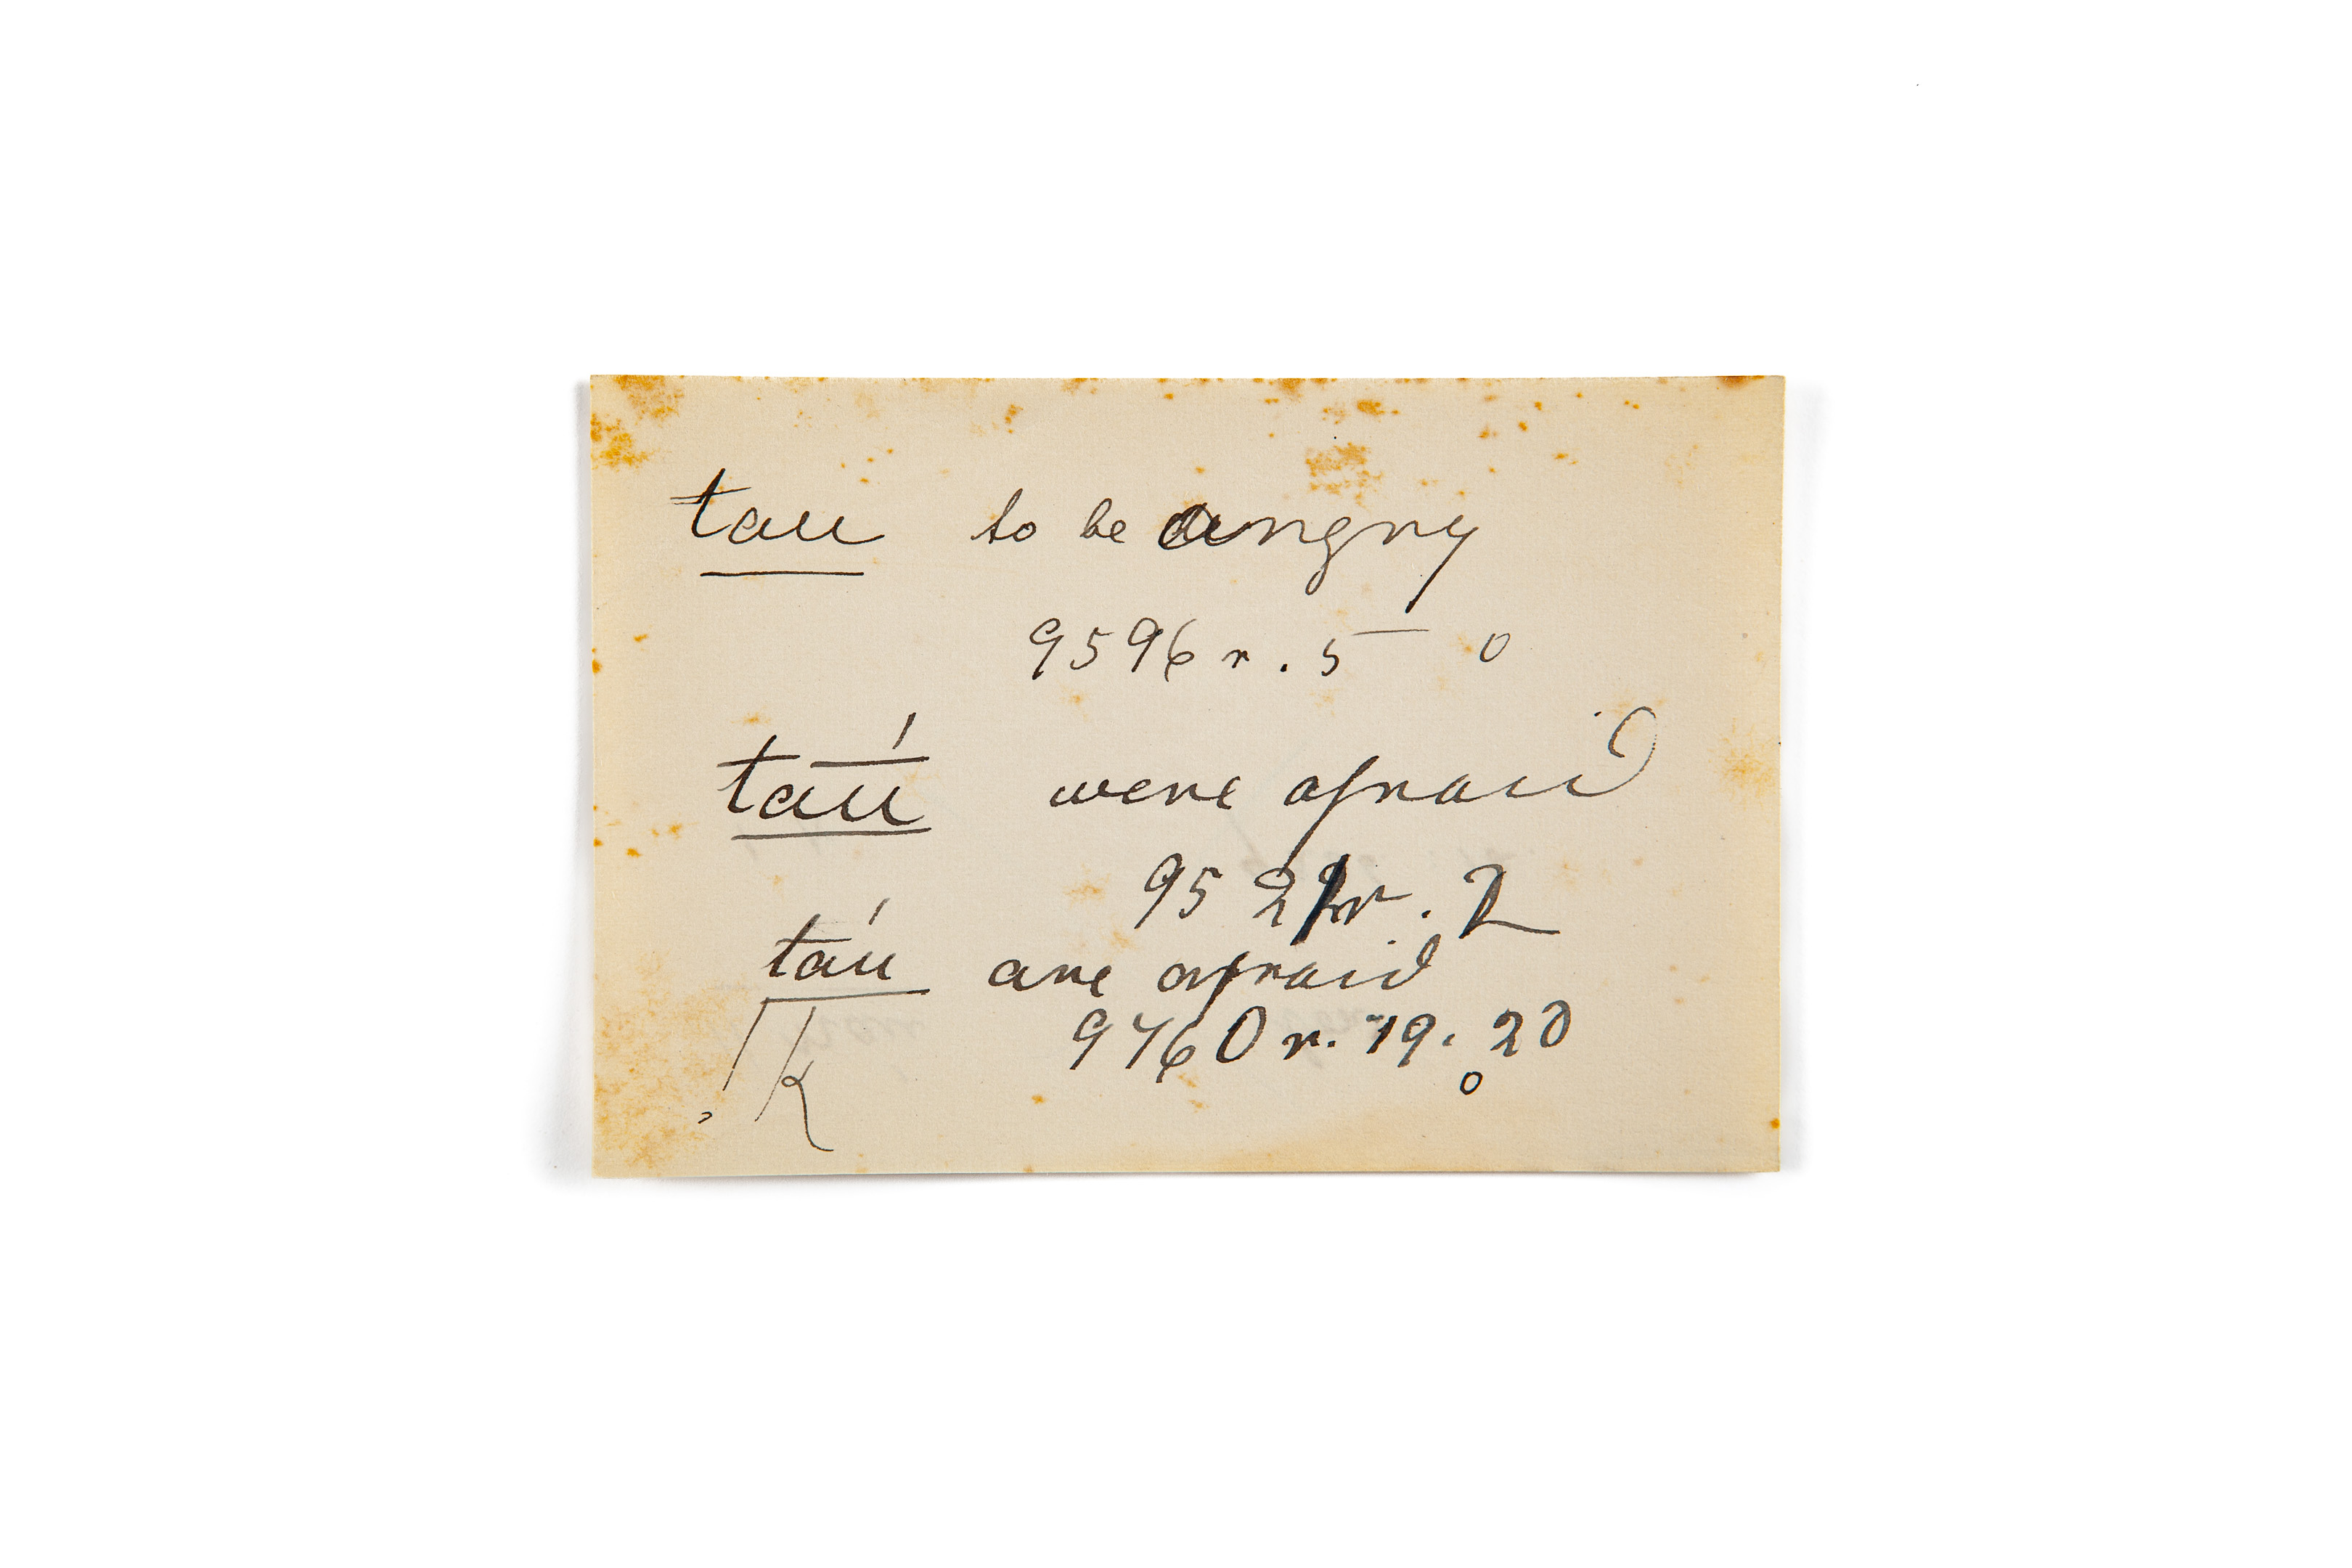 tau to be angry
9596 r. 5 0
taú were afraid
952 r. 2
taú are afraid
9760 r. 19. 20
0
K